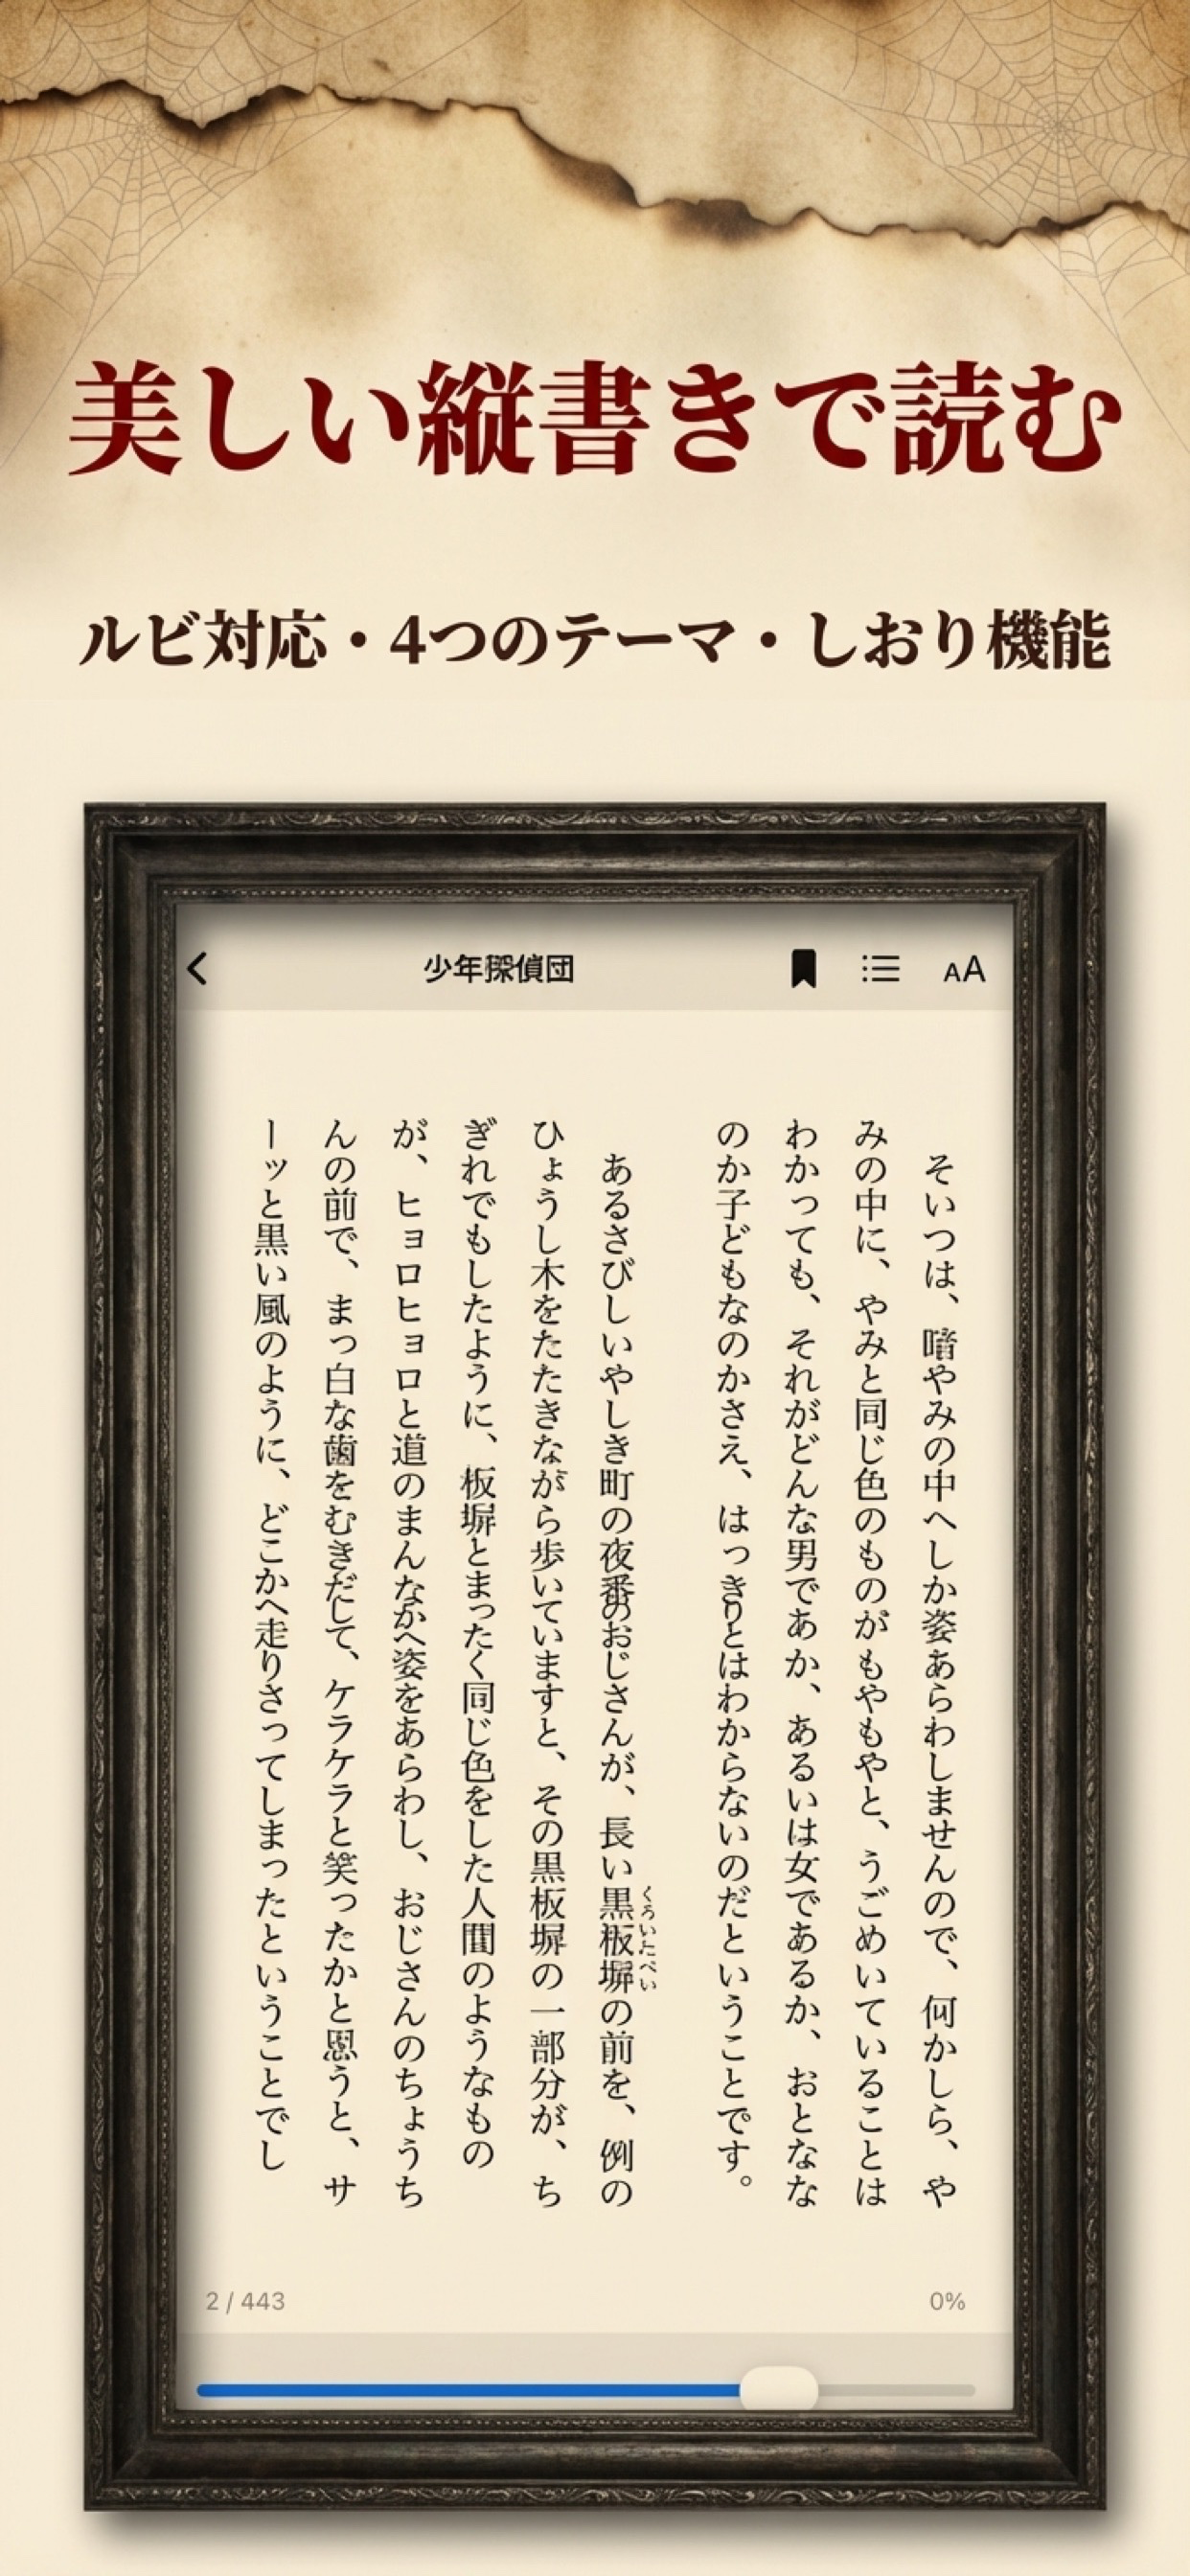 美しい縦書きで読む
ルビ対応・4つのテーマ・しおり機能
少年探偵団
AA
そいつは、暗やみの中へしか姿あらわしませんので、何かしら、や
みの中に、やみと同じ色のものがもやもやと、うごめいていることは
わかっても、それがどんな男であか、あるいは女であるか、おとなな
のか子どもなのかさえ、はっきりとはわからないのだということです。
あるさびしいやしき町の夜番のおじさんが、長い黒板塀の前を、例の
くろいたべい
ひょうし木をたたきながら歩いていますと、その黒板塀の一部分が、ち
ぎれでもしたように、板塀とまったく同じ色をした人間のようなもの
が、ヒョロヒョロと道のまんなかへ姿をあらわし、おじさんのちょうち
んの前で、まっ白な歯をむきだして、ケラケラと笑ったかと思うと、サ
ーッと黒い風のように、どこかへ走りさってしまったということでし
2 / 443
0%